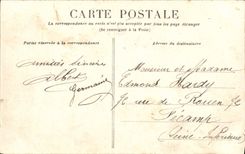 CARTE POSTALE
La correspondance au recto n'est pas acceptée par tous les pays étranger
(Se renseigner à la Poste)
Partie réservée à la correspondance
Adresse du destinataire
amitiés sincères
Albert
Germaine
Monsieur et Madame
Edmond Hardy
rue de Rouen
Fécamp
Seine Inférieure